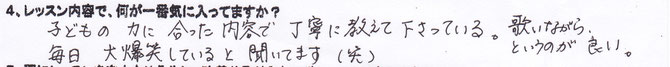 4、レッスン内容で、何が一番気に入ってますか？
子どもの 力に 合った 内容で 丁寧に 教えて 下さっている。 歌いながら、というのが 良い。
毎日 大爆笑していると 聞いてます (笑)